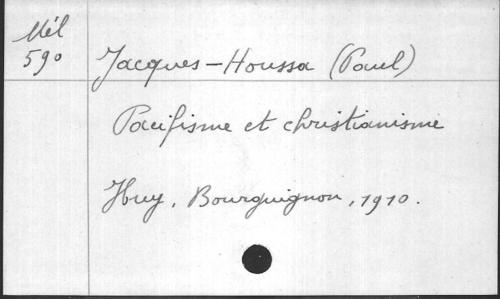 Mél
590
Jacques-Houssa (Paul)
Pacifisme et christianisme
Huy, Bourguignon, 1910.